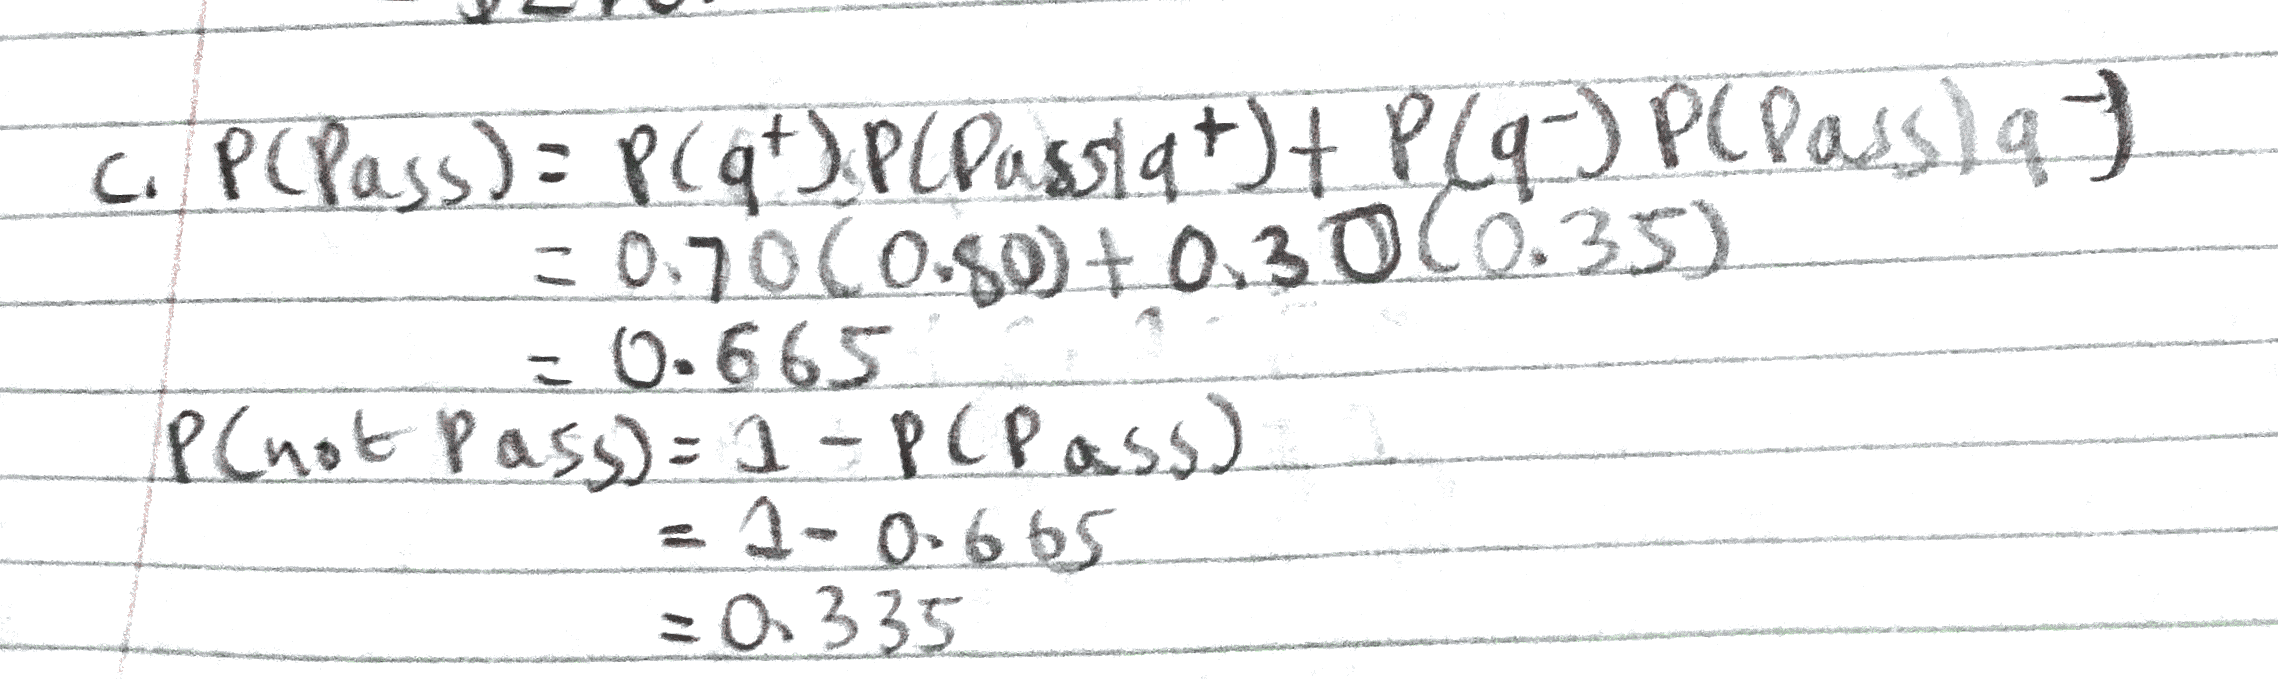 c. P(Pass) = P(q⁺).P(Pass|q⁺) + P(q⁻) P(Pass|q⁻)
= 0.70(0.80) + 0.30(0.35)
= 0.665
P(not Pass) = 1 - P(Pass)
= 1 - 0.665
= 0.335